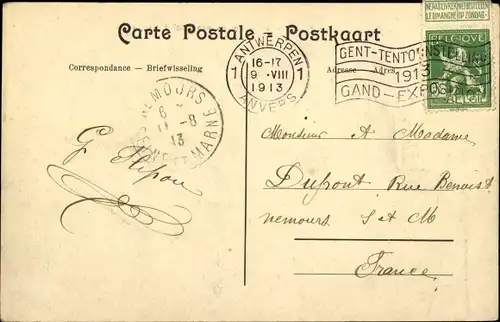 NE PAS LIVRER LE DIMANCHE
NIET BESTELLEN OP ZONDAG
Carte Postale - Postkaart
Correspondance - Briefwisseling
Adresse - Adres
ANTWERPEN
1 16-17 1
9 -VIII
1913
ANVERS
GENT-TENTOONSTELLING
1913
GAND-EXPOSITION
BELGIQUE
BELGIË
NEMOURS
6
11-8
13
SEINE ET MARNE
G
Monsieur A Madame
Dupont Rue Benoist
nemours S et M
France